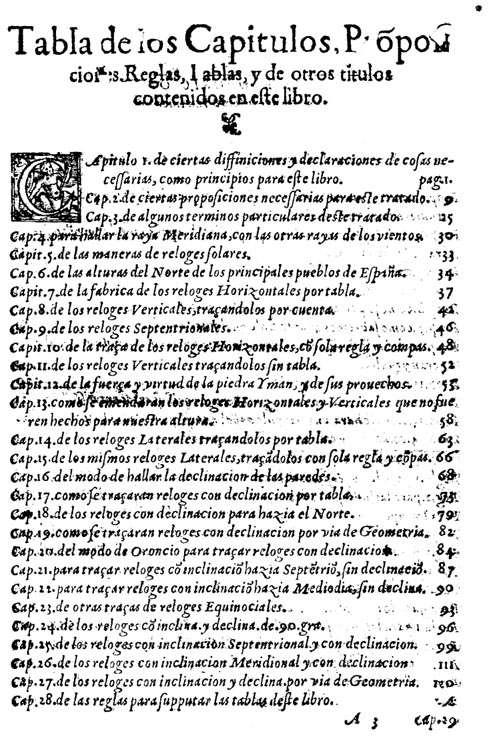 Tabla de los Capitulos, Propoſi
cioīes, Reglas, Tablas, y de otros titulos
contenidos en eſte libro.
CApitulo 1. de ciertas diffiniciones y declaraciones de coſas ne-
ceſſarias, como principios para eſte libro. pag.1.
Cap.2.de ciertas propoſiciones neceſſarias para eſte tratado. 9.
Cap.3.de algunos terminos particulares deſte tratado. 25
Cap.4.para hallar la raya Meridiana,con las otras rayas de los vientos 30
Capit.5.de las maneras de reloges ſolares. 33
Cap.6.de las alturas del Norte de los principales pueblos de Eſpaña. 34
Capit.7.de la fabrica de los reloges Horizontales por tabla. 37
Cap.8.de los reloges Verticales,traçandolos por cuenta. 42
Cap.9.de los reloges Septentrionales. 46
Capit.10.de la traça de los reloges Horizontales,cō ſola regla y compas. 48
Cap.11.de los reloges Verticales traçandolos ſin tabla. 52
Capit.12.de la fuerça y virtud de la piedra Ymán, y de sus prouechos. 55
Cap.13.como ſe emendaran los reloges Horizontales y Verticales que no fue
ren hechos para nueſtra altura. 58
Cap.14.de los reloges Laterales traçandolos por tabla. 63
Cap.15.de los miſmos reloges Laterales,traçādolos con ſola regla y cōpas. 66
Cap.16.del modo de hallar la declinacion de las paredes. 68
Cap.17.como ſe traçaran reloges con declinacion por tabla. 75
Cap.18.de los reloges con declinacion para hazia el Norte. 79
Cap.19.como ſe traçaran reloges con declinacion por via de Geometria. 82
Cap.20.del modo de Oroncio para traçar reloges con declinacion. 84
Cap.21.para traçar reloges cō inclinaciō hazia Septētriō, ſin declinaciō. 87
Cap.22.para traçar reloges con inclinaciō hazia Mediodia,ſin declina. 90
Cap.23.de otras traças de reloges Equinociales. 93
Cap.24.de los reloges cō inclina.y declina.de.90.gra. 96
Cap.25.de los reloges con inclinacion Septentrional y con declinacion. 99
Cap.26.de los reloges con inclinacion Meridional y con declinacion 111
Cap.27.de los reloges con inclinacion y declina.por via de Geometria. 120
Cap.28.de las reglas para ſupputar las tablas deſte libro.
A 3 Cap.29